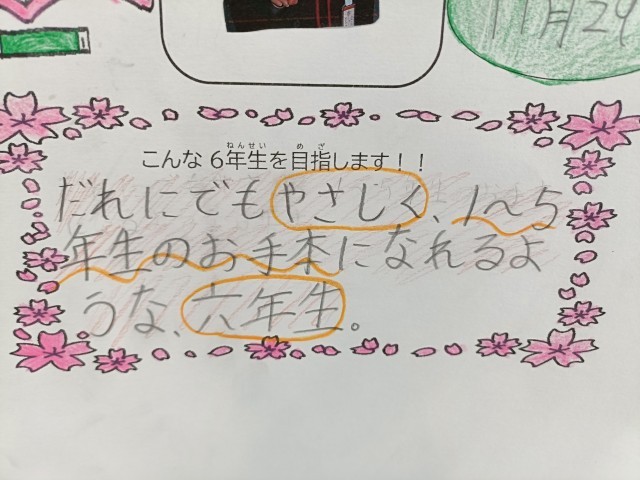 11月29
こんな6年生を目指します！！
ねんせい めざ
だれにでもやさしく、1〜5
年生のお手本になれるよ
うな、六年生。